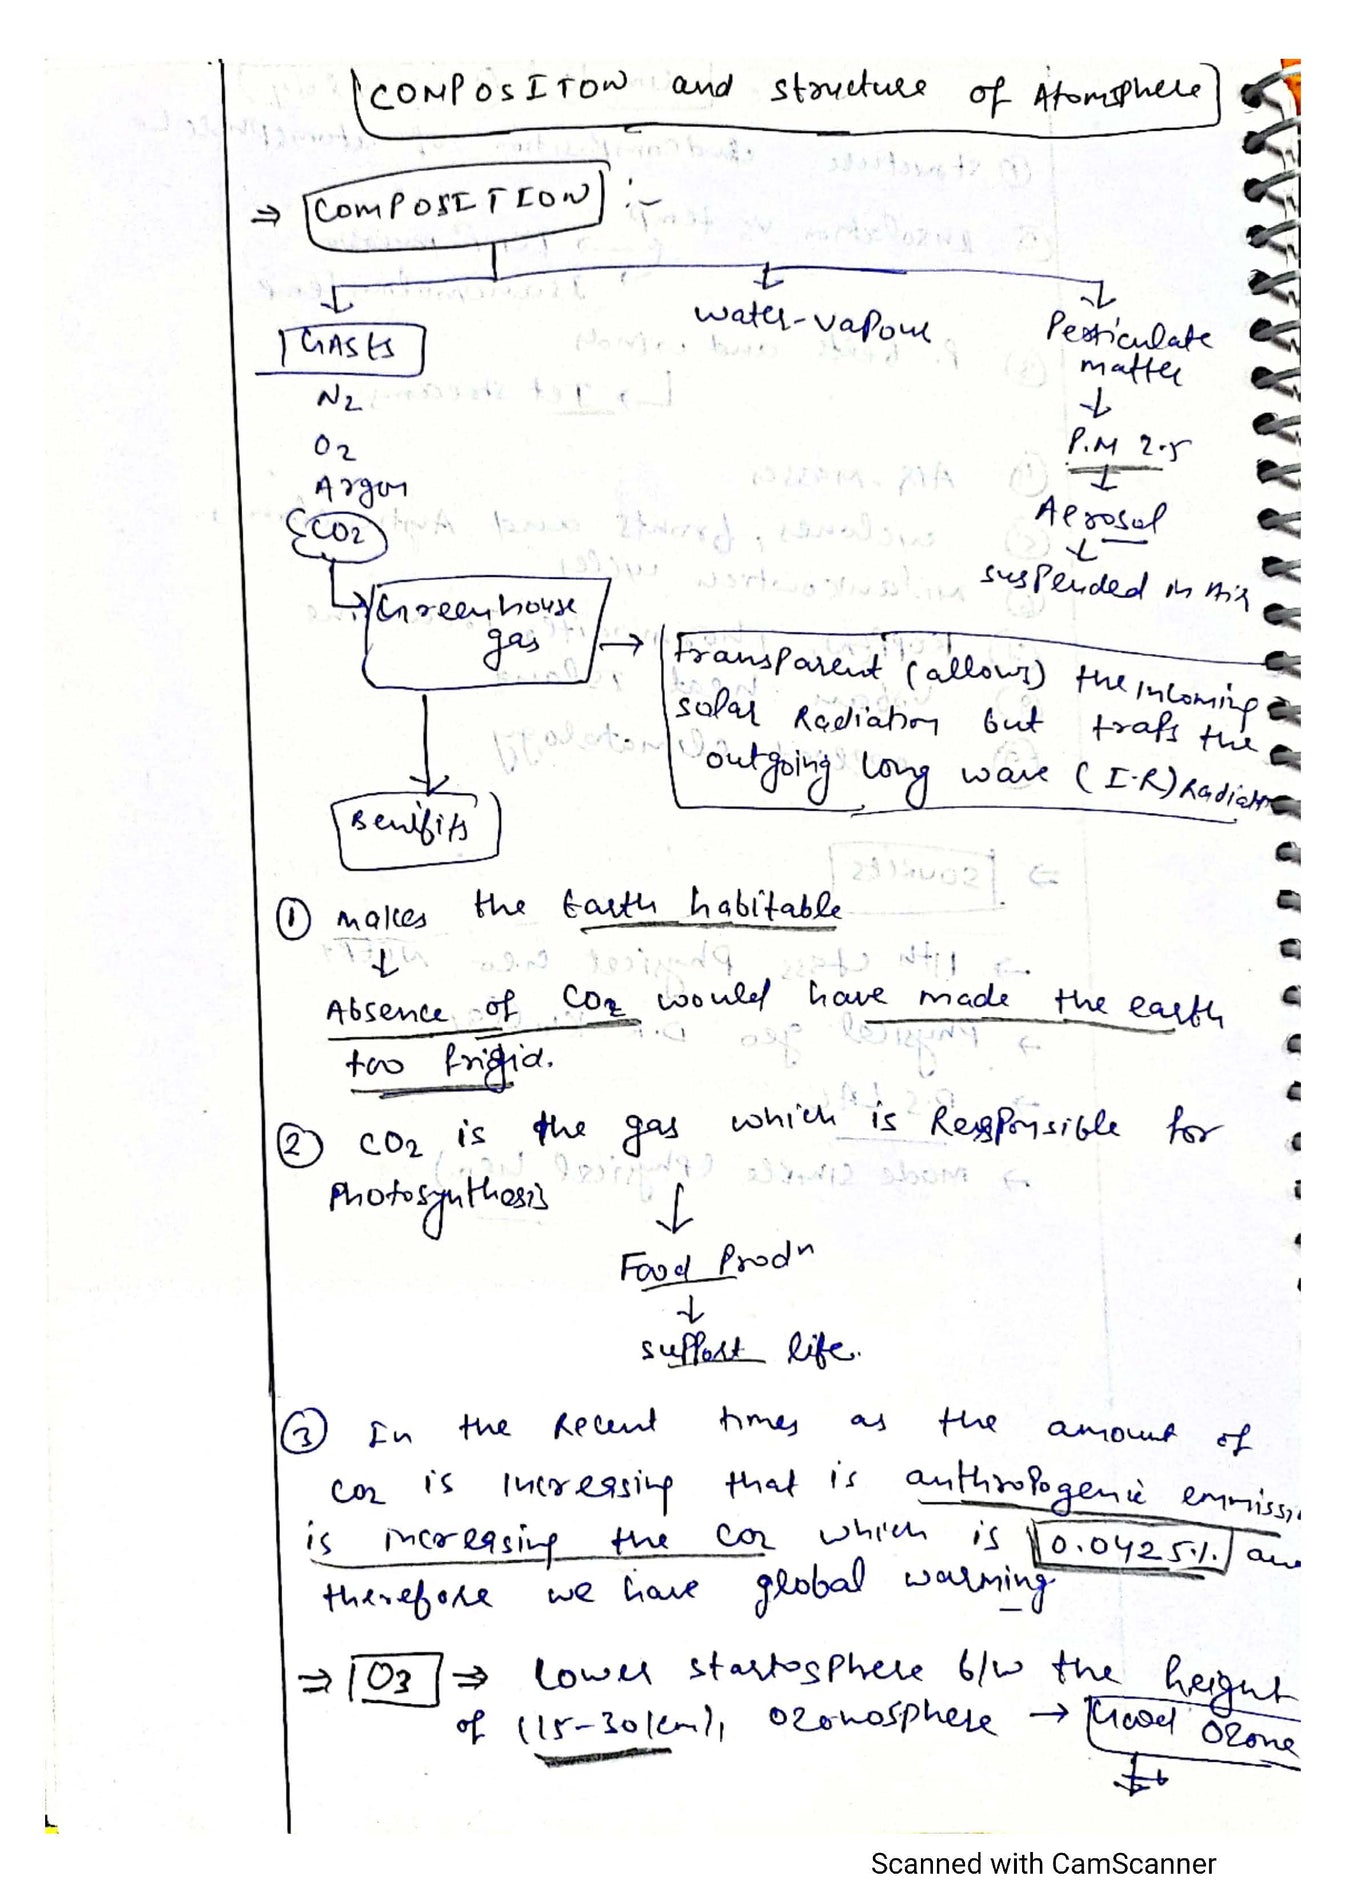 COMPOSITON and structure of Atomsphere
⇒ COMPOSITION :-
GASES
water-vapour
Perticulate
matter
N2
O2
Argon
CO2
↓
P.M 2.5
↓
Aerosol
↓
suspended in Air
Greenhouse
gas
→ transparent (allows) the incoming
solar Radiation but traps the
outgoing long wave (I.R) Radiatn
Benifits
① makes the Earth habitable
↓
Absence of CO2 would have made the earth
too frigid.
② CO2 is the gas which is Responsible for
Photosynthesis
↓
Food Prodn
↓
support life.
③ In the Recent times as the amount of
CO2 is increasing that is anthropogenic emmissi
is increasing the CO2 which is 0.0425% an
therefore we have global warming
⇒ O3 ⇒ Lower startosphere b/w the height
of (15-30km), Ozonosphere → Good Ozone
Scanned with CamScanner